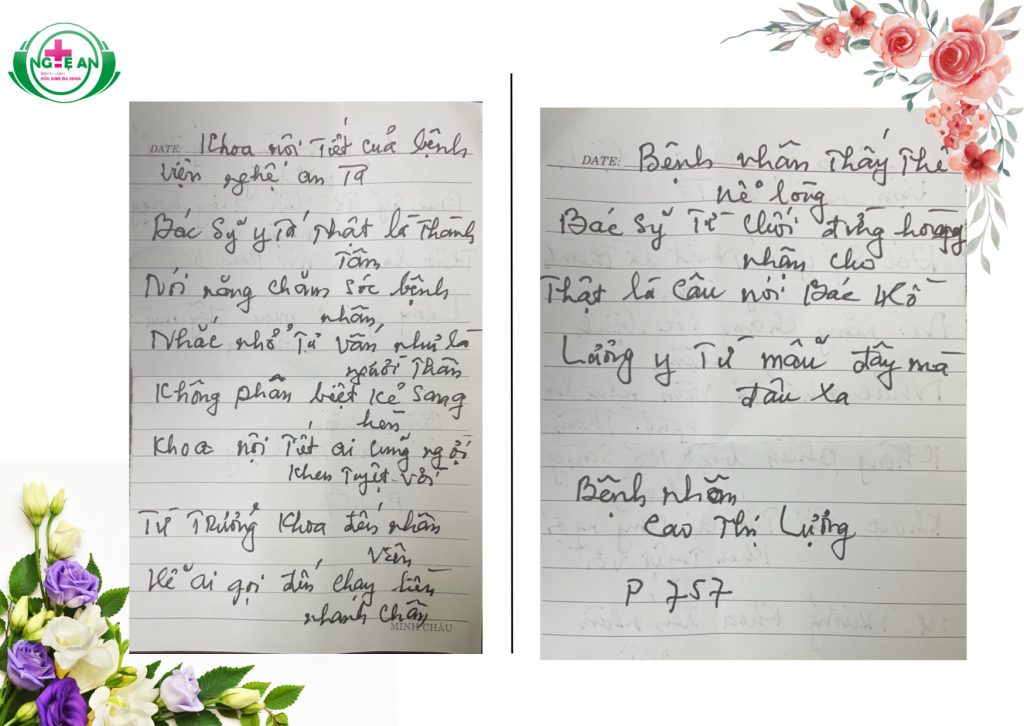 NGHỆ AN
BỆNH VIỆN
HỮU NGHỊ ĐA KHOA
DATE: Khoa nội Tiết của bệnh
viện nghệ an T9
Bác sỹ y Tá thật là Thành
Tâm
Nói năng chăm sóc bệnh
nhân
Nhắc nhở Tư vấn như là
người Thân
Không phân biệt kẻ sang
hèn
Khoa nội Tiết ai cũng ngợi
khen Tuyệt vời
Từ Trưởng khoa đến nhân
viên
Hễ ai gọi đến chạy liền
nhanh chân
MINH CHÂU
DATE: Bệnh nhân Thấy Thế
nể lòng
Bác sỹ Từ chối đừng hòng
nhân cho
Thật là câu nói Bác Hồ
Lương y Từ mẫu đây mà
đâu xa
Bệnh nhân
Cao Thị Lưỡng
P 757